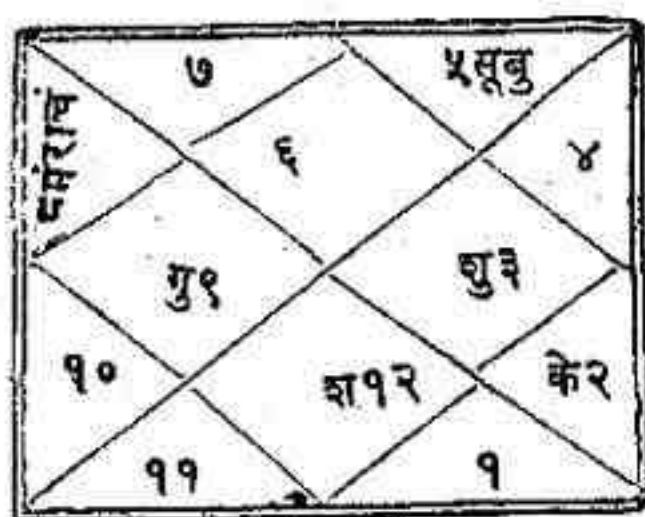 ७
५सूबु
८मंराचं
६
४
गु९
शु३
१०
श१२
के२
११
१